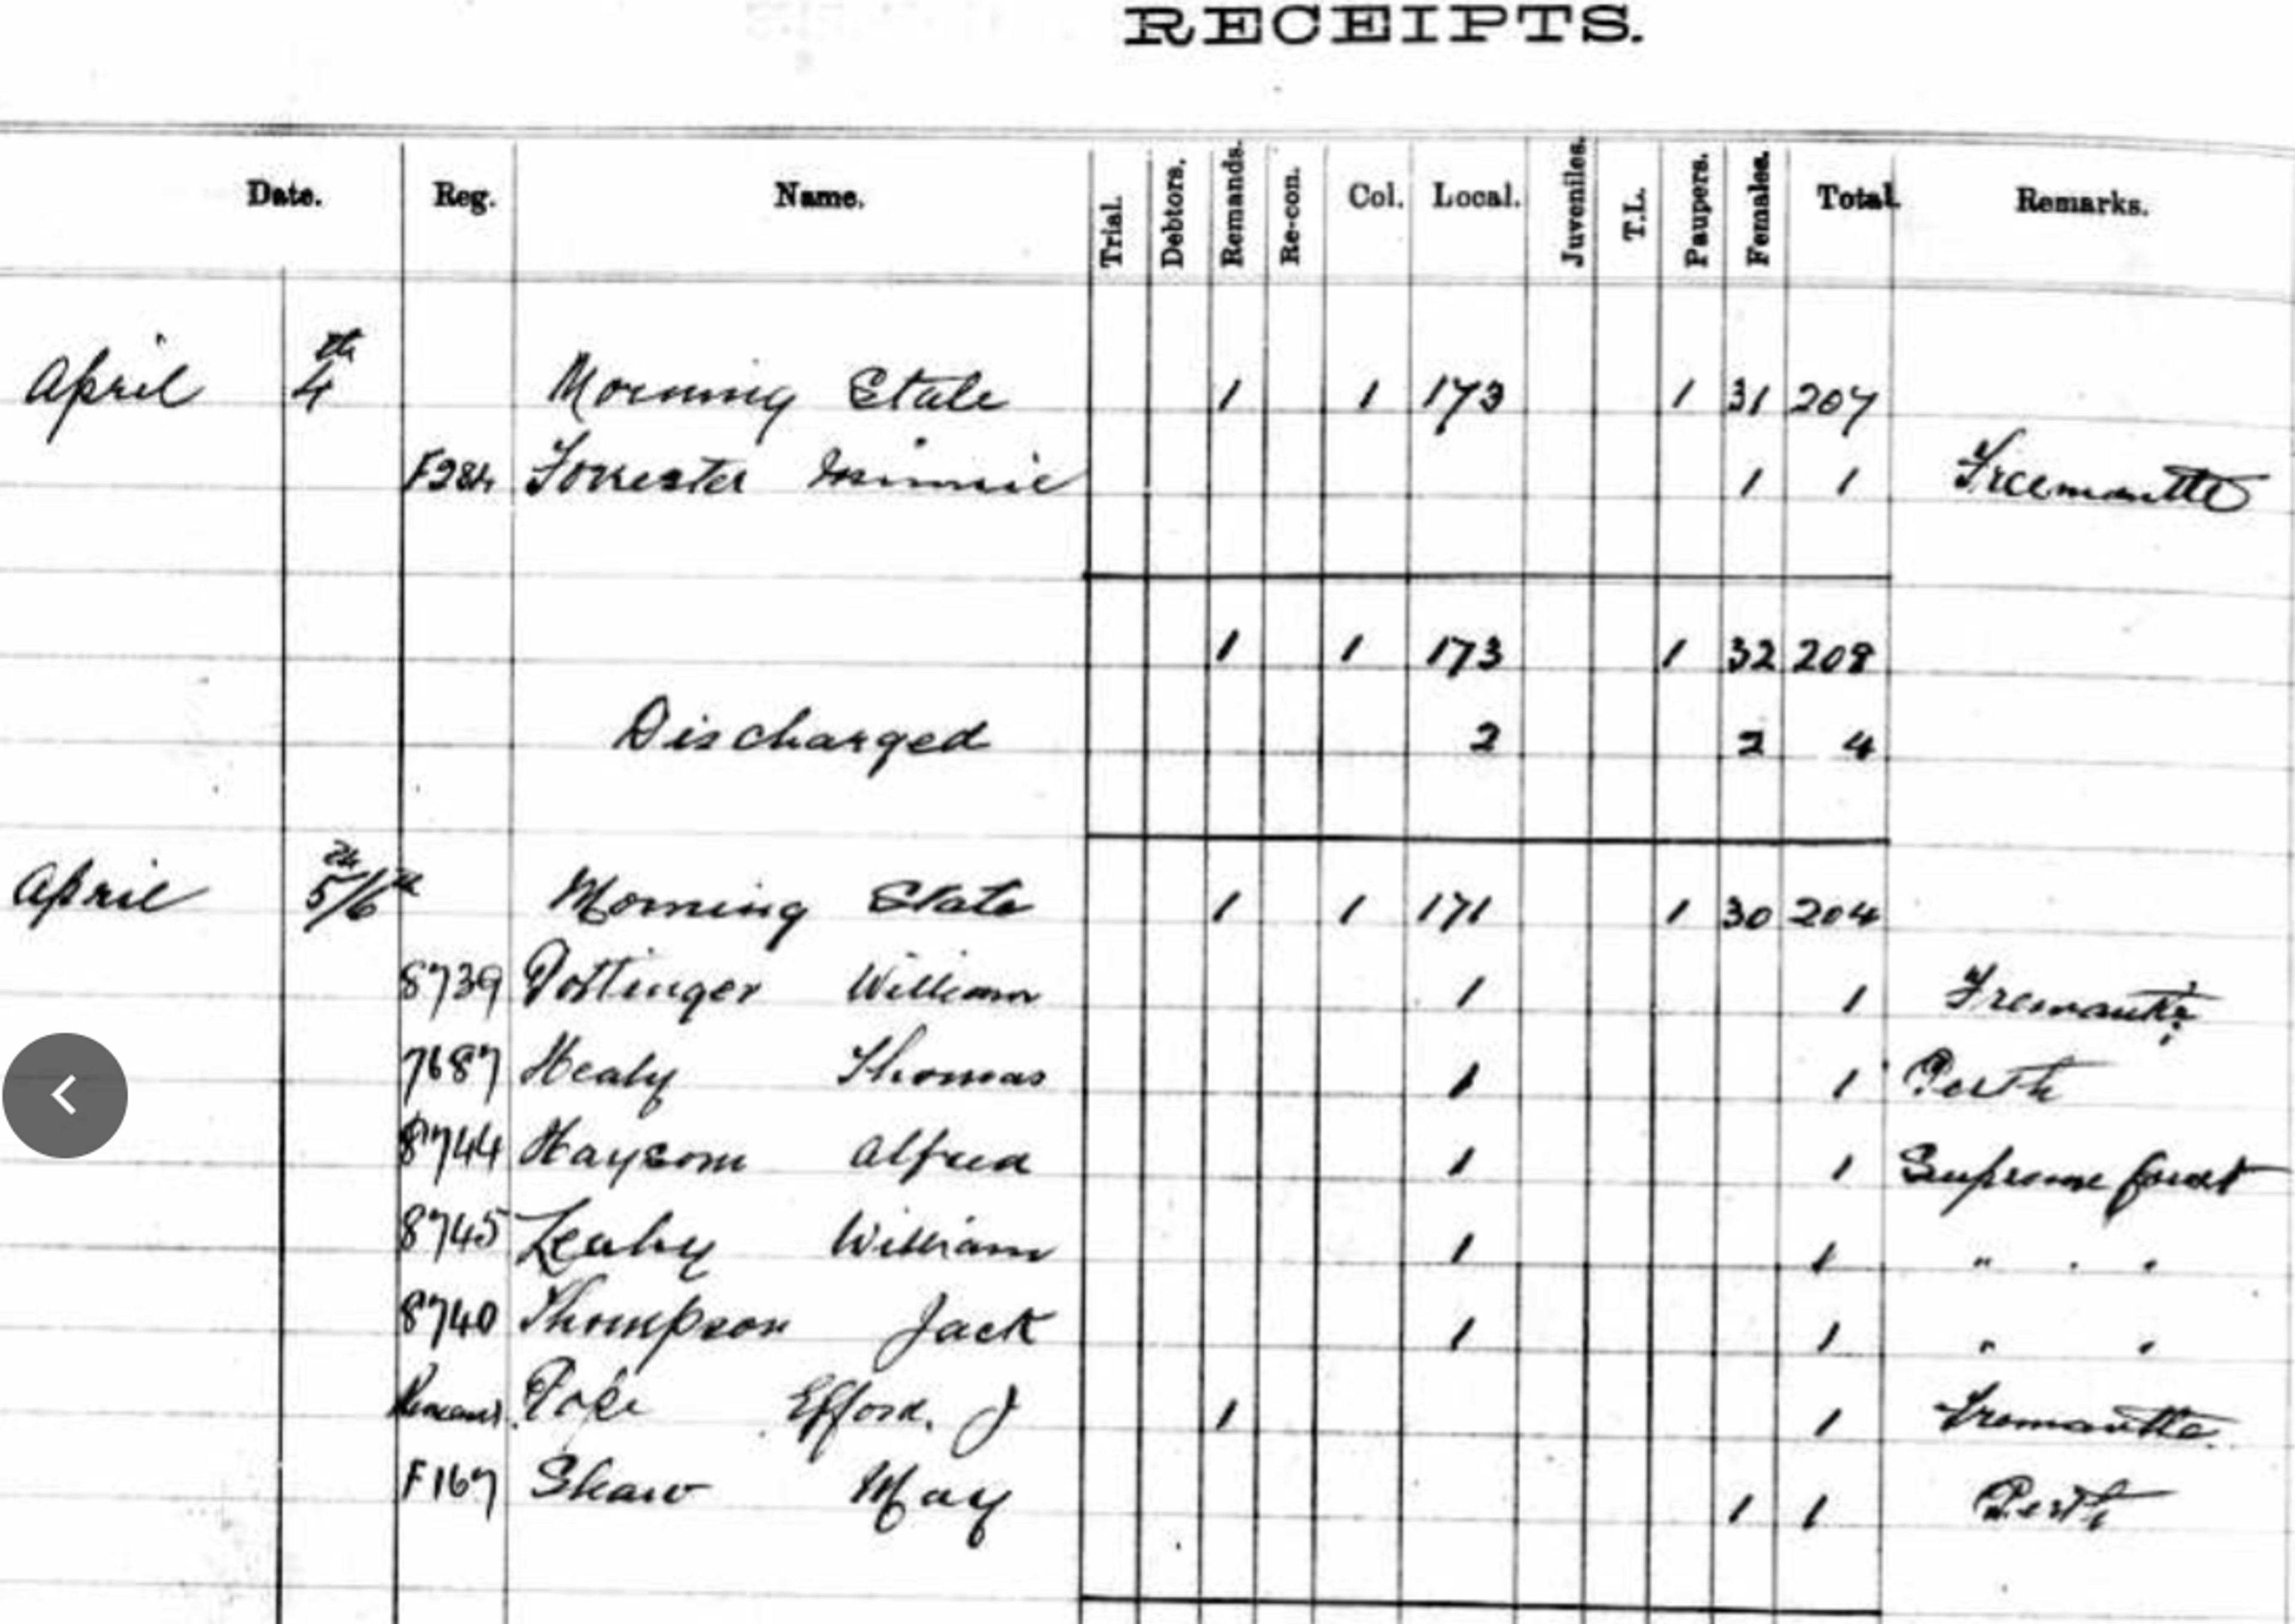 RECEIPTS.
Date. Reg. Name. Trial. Debtors. Remands. Re-con. Col. Local. Juveniles. T.L. Paupers. Females. Total. Remarks.
April 4th Morning State 1 1 173 1 31 207
F284 Forrester Minnie 1 1 Freemantle
1 1 173 1 32 208
Discharged 2 2 4
April 5th/6th Morning State 1 1 171 1 30 204
8739 William 1 1 Fremantle
7687 Healy Thomas 1 1 Perth
8744 Haysom Alfred 1 1 Supreme Court
8745 Leahy William 1 1 " " "
8740 Thompson Jack 1 1 " "
Remand. Pope Efford. J 1 1 Fremantle.
F167 Shaw May 1 1 Perth